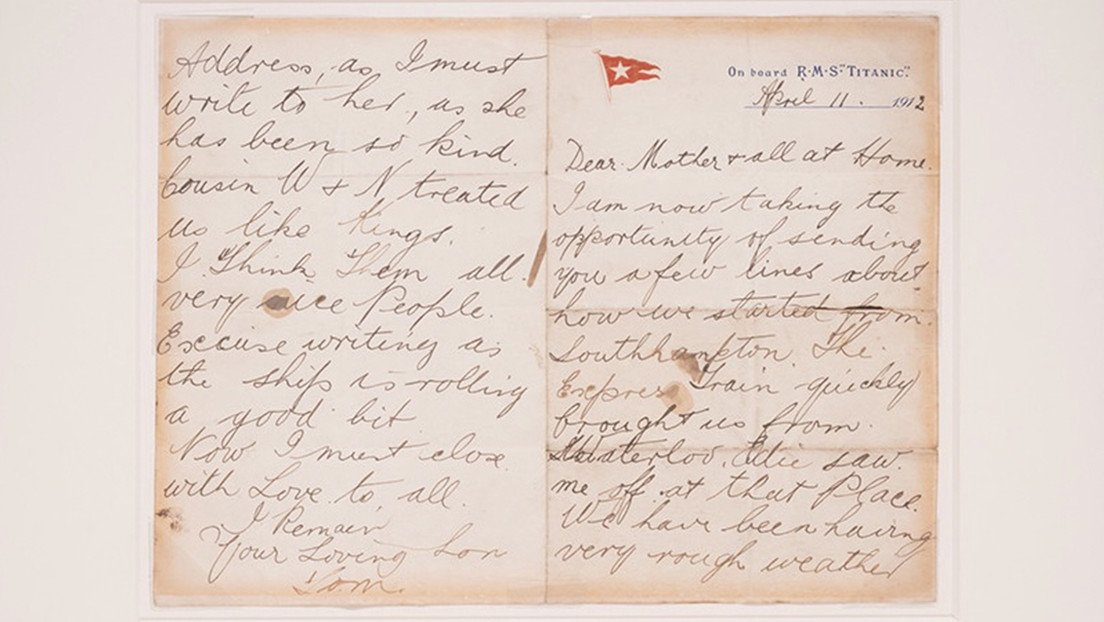 On board R·M·S "TITANIC".
April 11. 1912
Dear Mother & all at Home.
I am now taking the
opportunity of sending
you a few lines about
how we started from.
Southhampton. The.
Express Train quickly
brought us from.
Waterloo. Edie saw.
me off at that Place.
We have been having
very rough weather
Address, as I must
write to her, as she
has been so kind.
Cousin W & N treated
us like Kings.
I Think Them all.
very nice People.
Excuse writing as
the ship is rolling
a good bit.
Now I must close
with Love to all.
I Remain
Your Loving Son
Tom.